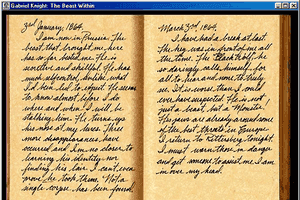 Gabriel Knight: The Beast Within
3rd January, 1864.
I am now in Russia. The
beast that brought me here
so far has eluded me. He is
secretive and skillful. He has
much
I'd been led to expect. He seems
to know almost before I do
where and when I will be
stalking him. He turns up
his nose at my lures. Three
more disappearances have
occured and I'm no closer to
learning his identity nor
finding his lair. I can't even
prove he took them. Not a
single corpse has been found.
March 30th, 1864.
I have had a break at last.
The key was in front of me all
the time. The Black Wolf, he
so daringly calls himself, for
all to hear and none to truly
see. It is worse than I could
ever have suspected. He is not
just a beast, but a Monster.
His jaws are already around some
of the best throats in Europe.
I return to Rittersberg tonight.
I must warn them in danger
and get someone to assist me. I am
in over my head.